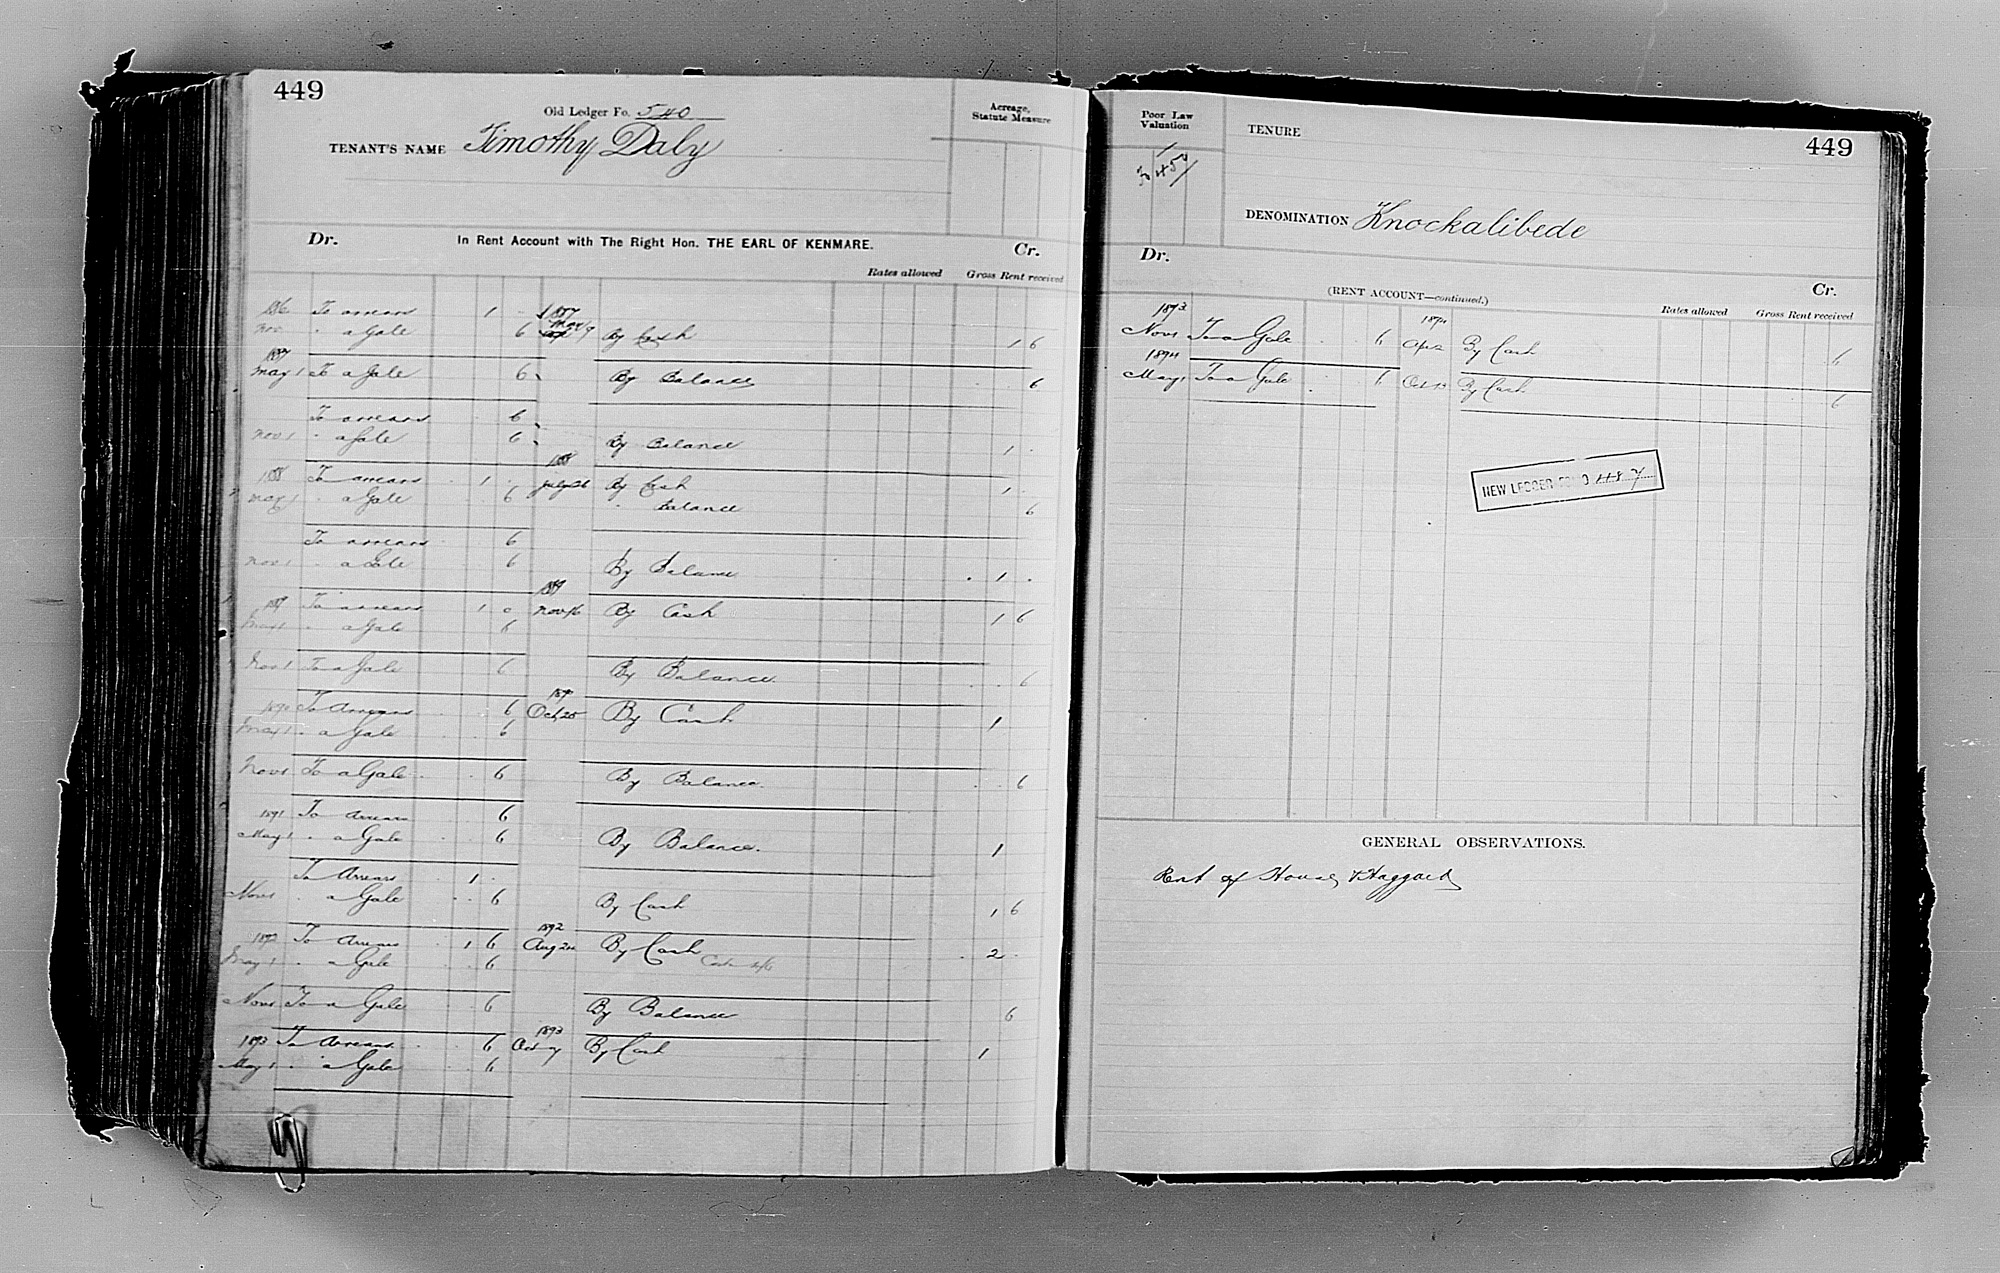 449
Old Ledger Fo. 540
Acreage,
Statute Measure
TENANT'S NAME Timothy Daly
Dr. In Rent Account with The Right Hon. THE EARL OF KENMARE. Cr.
Rates allowed Gross Rent received
1886 To arrears 1 1887
Nov " a Gale 6 May 9 By Cash 1 6
1887
May 1 To a Gale 6 By Balance 6
To arrears 6
Nov 1 " a Gale 6 By Balance 1
1888 To arrears 1 1888 July 26 By Cash 1
May 1 " a Gale 6 " Balance 6
To arrears 6
Nov 1 " a Gale 6 By Balance 1
1889 To arrears 1 0 1889 Nov 16 By Cash 1 6
May 1 " a Gale 6
Nov 1 To a Gale 6 By Balance 6
1890 To Arrears 6 1890 Oct 25 By Cash 1
May 1 " a Gale 6
Nov 1 To a Gale 6 By Balance 6
1891 To Arrears 6
May 1 " a Gale 6 By Balance 1
To Arrears 1
Nov 1 " a Gale 6 By Cash 1 6
1892 To Arrears 1 6 1892 Aug 24 By Cash 2
May 1 " a Gale 6 Cash
Nov 1 To a Gale 6 By Balance 6
1893 To Arrears 6 1893 Oct 7 By Cash 1
May 1 " a Gale 6
Poor Law
Valuation
TENURE
449
DENOMINATION Knockalibede
Dr. (RENT ACCOUNT—continued.) Cr.
Rates allowed Gross Rent received
1893 1894
Nov 1 To a Gale 6 Apr 2 By Cash 6
1894
May 1 To a Gale 6 Oct 13 By Cash 6
NEW LEDGER FOLIO
GENERAL OBSERVATIONS.
Rent of House, & Haggard